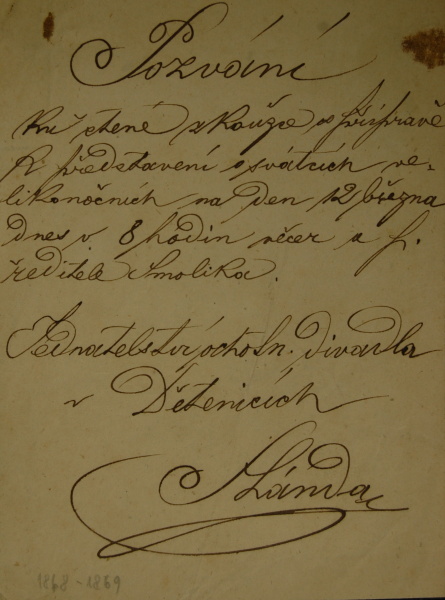 Pozvání
Ku čtené zkoušce o přípravě
k představení o svátcích ve-
likonočních na den 12 března
dnes v 8 hodin večer u p.
ředitele Smolíka.
Jednatelství ochotn. divadla
v Dětenicích
Lánda
1868-1869